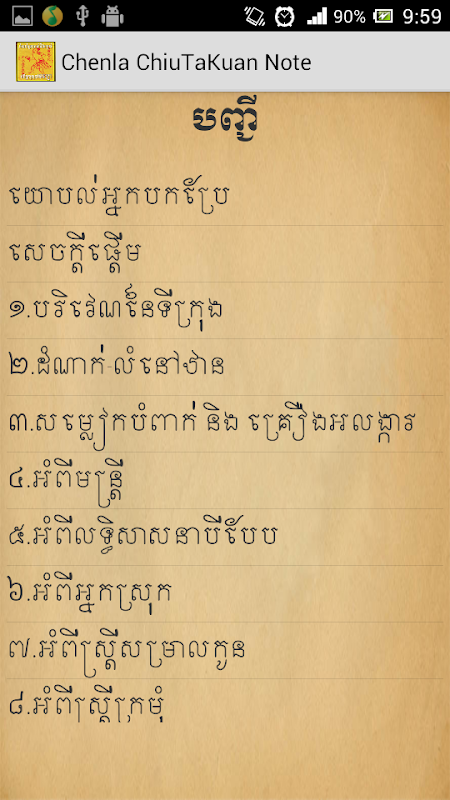 90% 9:59
Chenla ChiuTaKuan Note
បញ្ជី
យោបល់អ្នកបកប្រែ
សេចក្តីផ្តើម
១.បរិវេណនៃទីក្រុង
២.ដំណាក់-លំនៅឋាន
៣.សម្លៀកបំពាក់ និង គ្រឿងអលង្ការ
៤.អំពីមន្ត្រី
៥.អំពីលទ្ធិសាសនាបីបែប
៦.អំពីអ្នកស្រុក
៧.អំពីស្ត្រីសម្រាលកូន
៨.អំពីស្ត្រីក្រមុំ